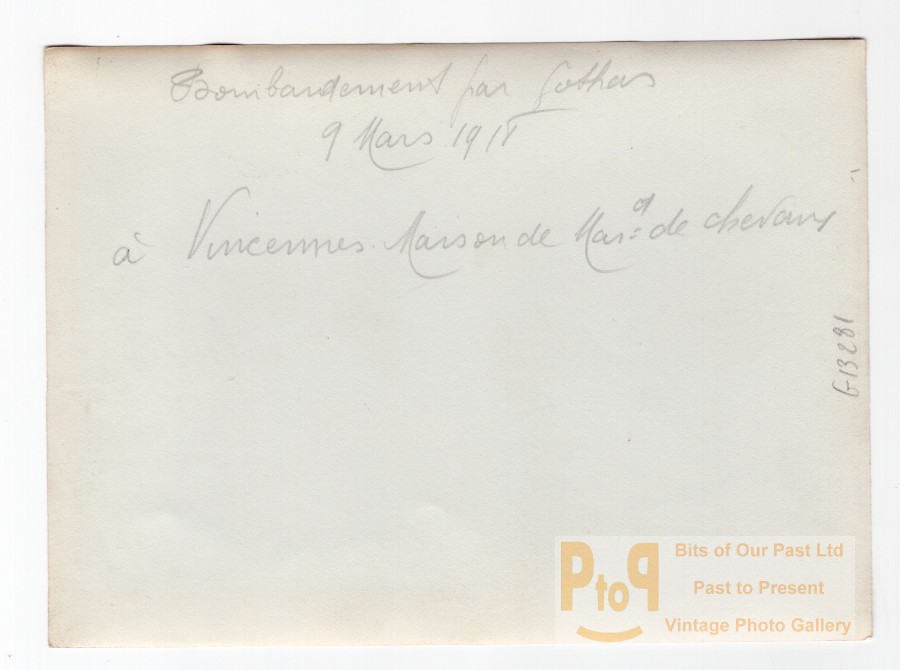 Bombardement par Gothas
9 Mars 1918
à Vincennes. Maison de Mar.d de chevaux
G13281
PtoP
Bits of Our Past Ltd
Past to Present
Vintage Photo Gallery